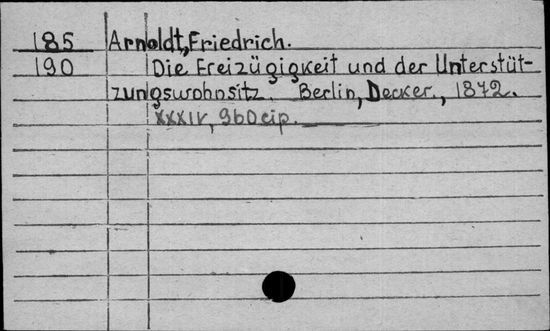 185 Arnoldt, Friedrich.
190 Die Freizügigkeit und der Unterstüt-
zungswohnsitz. Berlin, Decker., 1872.
XXXIV, 960